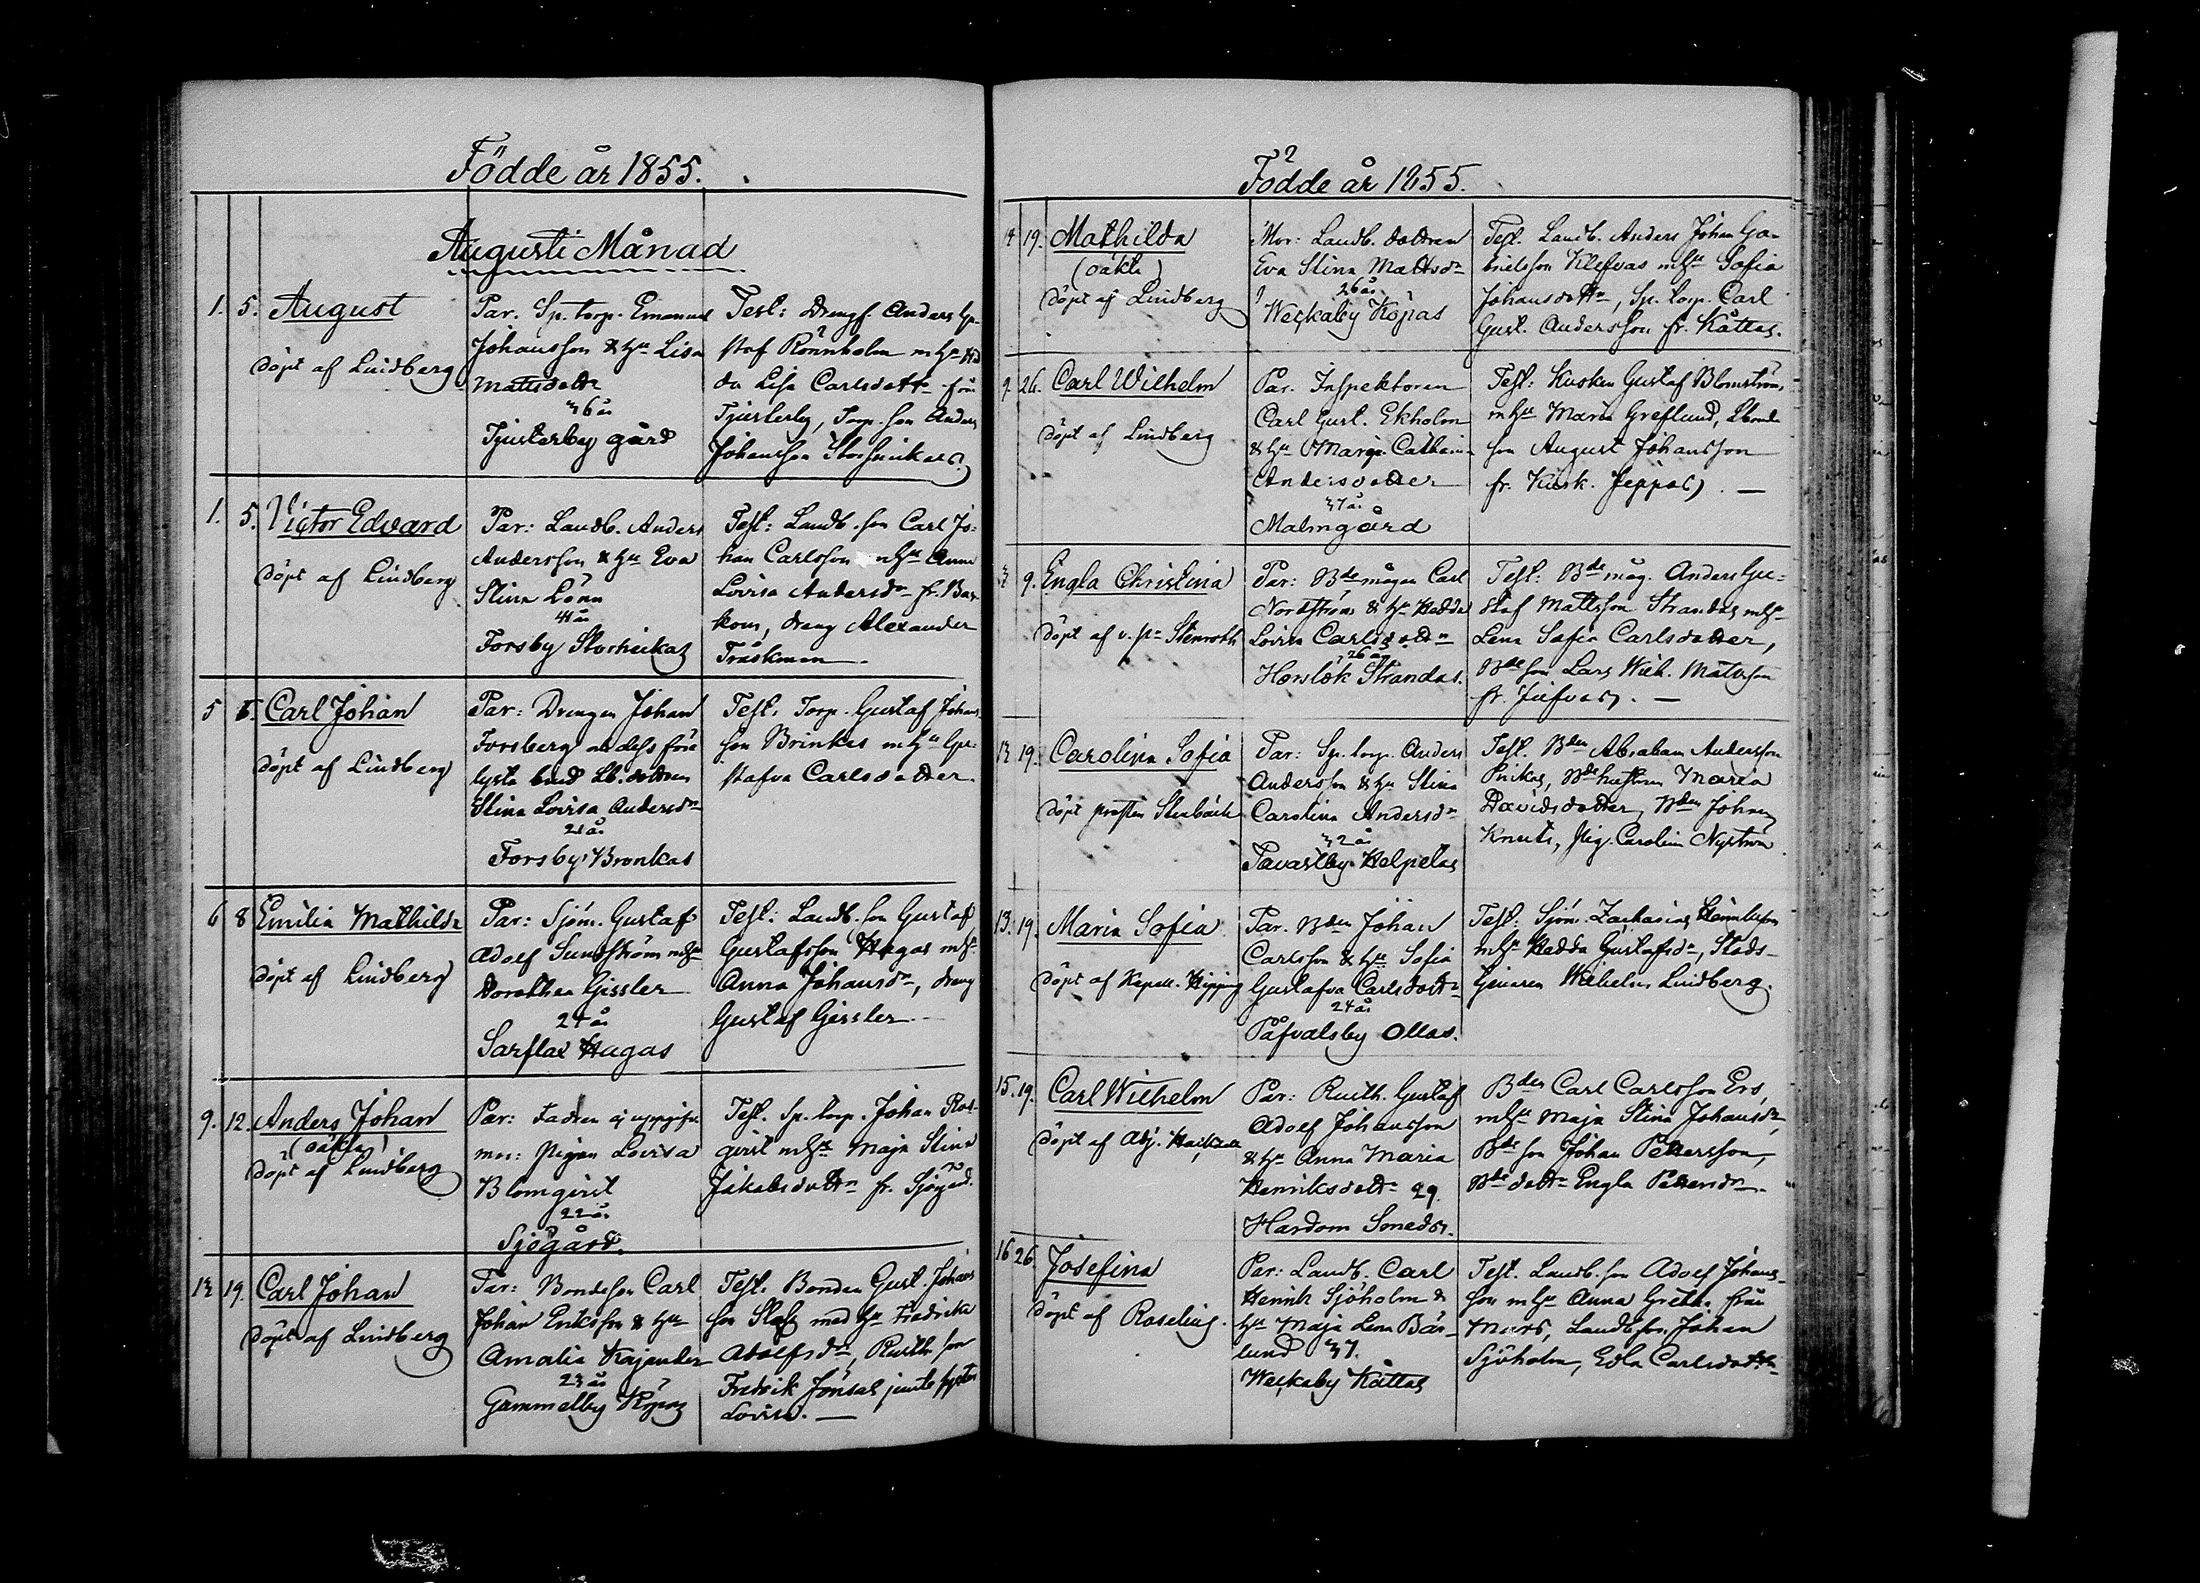 Födde år 1855.
Augusti Månad
1. 5. August
döpt af Lindberg
Par. Sp. torp. Emanuel
Johansson & hu Lisa
Mattsdotr
36 år
Tjusterby gård
Test: Drengf. Anders Gu-
staf Rönnholm mhu Hed
da Lisa Carlsdottr från
Tjusterby, Torp. son Anders
Johansson Storhinkas.
1. 5. Victor Edvard
döpt af Lindberg
Par: Landb. Anders
Andersson & hu Eva
Stina Lönn
41 år
Forsby Storheikas
Test: Landb. son Carl Jo-
han Carlsson mhu Anna
Lovisa Andersdr fr.
kom, dreng Alexander
Träskman
5 5. Carl Johan
döpt af Lindberg
Par: Drengen Johan
Forsberg o dess före
lysta brud Lb. dottren
Stina Lovisa Andersdr
21 år
Forsby Bronkas
Test: Torp. Gustaf Johans-
son Brinkas mhu Gu-
stafva Carlsdotter
6 8 Emilia Mathilda
döpt af Lindberg
Par: Sjöm. Gustaf
Adolf Sundström mhu
Dorothea Gissler
24 år
Sarflax Hagas
Test: Landb. son Gustaf
Gustafsson Hagas mhu
Anna Johansdr, dreng
Gustaf Gissler
9. 12. Anders Johan
(oäkta)
döpt af Lindberg
Par: Fadren ej uppgifven
mor: Pigan Lovisa
Blomqvist
22 år
Sjögård.
Test. Sp. torp. Johan Ros-
qvist mhu Maja Stina
Jakobsdottr fr. Sjögård.
12 19. Carl Johan
döpt af Lindberg
Par: Bondeson Carl
Johan Eriksson & hu
Amalia Kajander
23 år
Gammelby Köpas
Test. Bonden Gust. Johans
son Staf med hu Fredrika
Adolfsdr, Rusth. son
Fredrik Jonsas jemte syster
Lovisa.
Födde år 1855.
4 19. Mathilda
(oäkta)
döpt af Lindberg
Mor: Landb. dottren
Eva Stina Mattsdr
26 år.
Weckaby Köpas
Test. Landb. Anders Johan Ga-
brielsson Klefvas mhu Sofia
Johansdottr, Sp. torp. Carl
Gust. Andersson fr. Kåttas.
9 26. Carl Wilhelm
döpt af Lindberg
Par. Inspektoren
Carl Gust. Ekholm
& hu Maria Cathrin
Andersdotter
37 år
Malmgård
Test: Kusken Gustaf Blomström
mhu Maria Greflund, Lbonde
son August Johansson
fr. Kusk. Jeppas.
9. Engla Christina
döpt af v. pr Stenroth
Par: Bde mågen Carl
Nordström & hu Hedda
Lovisa Carlsdottr
26 år
Horslök Strandas.
Test: Bde måg. Anders Gu-
staf Mattsson Strandas mhu
Lena Sofia Carlsdotter,
Bde son Lars Wilh. Mattsson
fr. Jufvas.
12 19. Carolina Sofia
döpt prosten Stenbäck
Par: Sp. torp. Anders
Andersson & hu Stina
Carolina Andersdr
32 år
Tavastby Helpelas
Test. Bden Abraham Andersson
Pukas, Bde hustrun Maria
Davidsdotter, Bden Johan
Knuts, pig. Carolin Nyström
13. 19. Maria Sofia
döpt af Kapell. Hipping
Par. Bden Johan
Carlsson & hu Sofia
Gustafva Carlsdottr
24 år
Påfvalsby Ollas.
Test: Sjöm. Zacharias
mhu Hedda Gustafsdr, Stads-
tjenaren Wilhelm Lindberg.
15. 19. Carl Wilhelm
döpt af Adj.
Par: Rusth. Gustaf
Adolf Johansson
& hu Anna Maria
Henriksdottr 29.
Hardom Smeds.
Bden Carl Carlsson Ers,
mhu Maja Stina Johansdr,
Bde son Johan Pettersson,
Bde dottr Engla Pettersdr
16 26. Josefina
döpt af Roselius.
Par: Landb. Carl
Henrik Sjöholm &
hu Maja Lena Bär-
lund 37.
Weckaby Kåttas
Test. Landb. son Adolf Johans-
son mhu Anna Greta från
Mars, Landb. son Johan
Sjöholm, Edla Carlsdottr